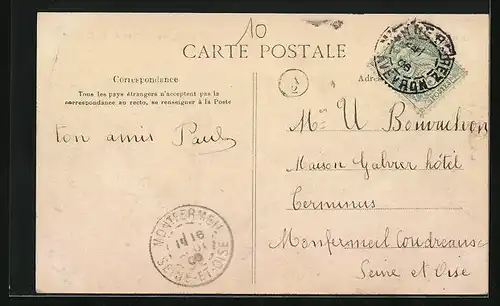 10
CARTE POSTALE
Correspondance
Tous les pays étrangers n'acceptent pas la
correspondance au recto, se renseigner à la Poste
Adre
ton ami Paul
AVEYRON
Mr U
Maison Galvier hôtel
Terminus
Monfermeil Coudreaux
Seine et Oise
MONTFERMEIL
SEINE-ET-OISE